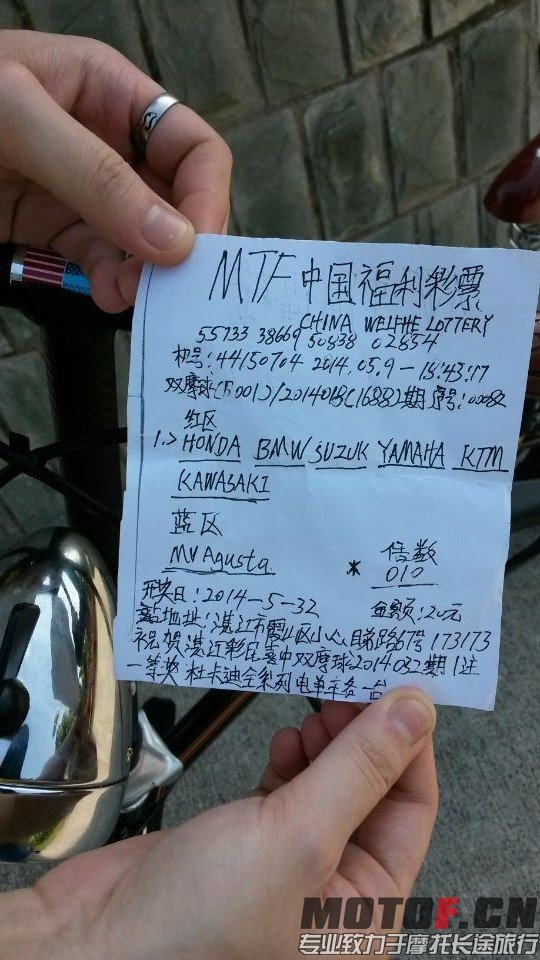 MTF 中国福利彩票
CHINA WELFHE LOTTERY
55733 38669 50838 02854
机号:44150704 2014.05.9-18:43:17
双摩球(B001)/2014018(1688)期 序号:00082
红区
1.> HONDA BMW SUZUK YAMAHA KTM
KAWASAKI
蓝区
倍数
MV Agusta * 010
开奖日:2014-5-32 金额:20元
站地址:湛江市霞山区小心目睇路67号 173173
祝贺湛江彩民喜中双摩球2014032期1注
一等奖 杜卡迪全系列电单车各一台
MOTOF.CN
专业致力于摩托长途旅行